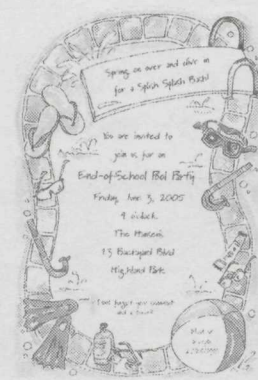 Spring on over and dive in
for a Splish Splash Bash!
You are invited to
join us for an
End-of-School Pool Party
Friday, June 3, 2005
4 o'clock
The
13 Backyard Blvd
Highland Park
Don't forget your swimsuit
and a towel!